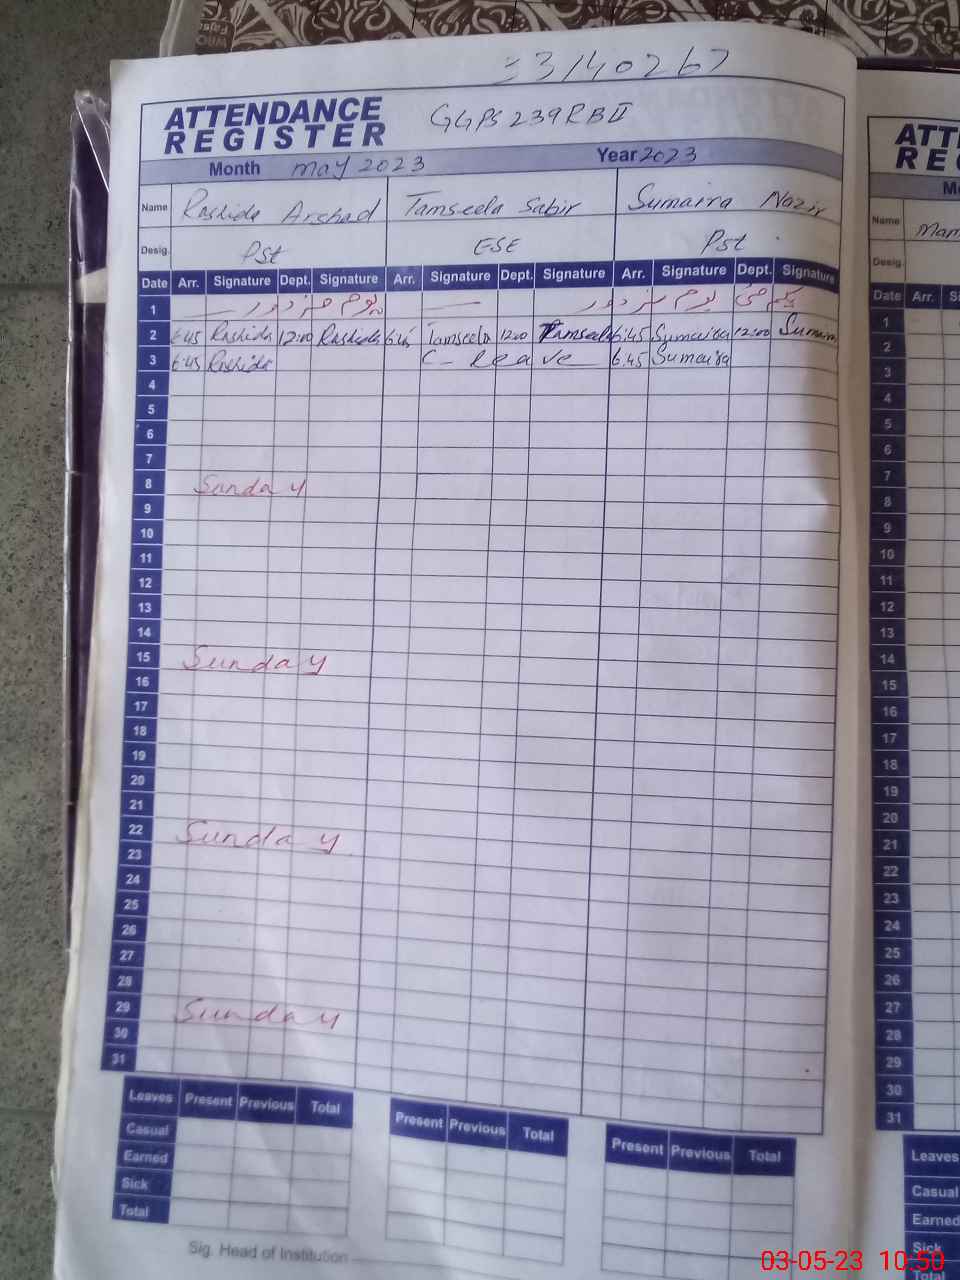 33140267
ATTENDANCE REGISTER GGPS 239 RB II
Month May 2023 Year 2023
Name Rashida Arshad Tamseela Sabir Sumaira Nazir
Desig. Pst ESE Pst
Date Arr. Signature Dept. Signature Arr. Signature Dept. Signature Arr. Signature Dept. Signature
1 یوم مزدور یکم مئی یوم مزدور
2 6:45 Rashida 12:00 Rashida 6:45 Tamseela 12:00 Tamseela 6:45 Sumaira 12:00 Sumaira
3 6:45 Rashida C-leave 6:45 Sumaira
4
5
6
7
8 Sunday
9
10
11
12
13
14
15 Sunday
16
17
18
19
20
21
22 Sunday
23
24
25
26
27
28
29 Sunday
30
31
Leaves Present Previous Total Present Previous Total Present Previous Total
Casual
Earned
Sick
Total
Sig. Head of Institution
Name
Desig.
Date Arr.
1
2
3
4
5
6
7
8
9
10
11
12
13
14
15
16
17
18
19
20
21
22
23
24
25
26
27
28
29
30
31
Leaves
Casual
Earned
Sick
Total
03-05-23 10:50